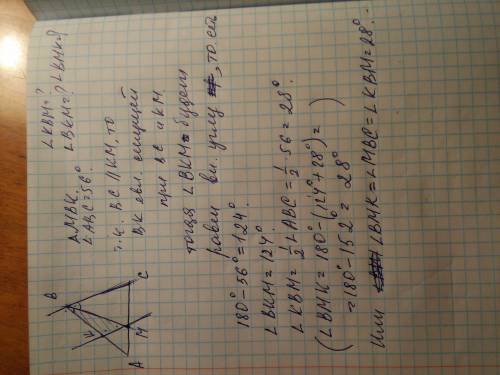 B
C
K
M
A
∆ MBK
∠ABC=56°
∠KBM=?
∠BKM=?
∠BMK=?
т.к. BC || KM, то
BK явл. секущей
при BC и KM
тогда ∠BKM будет
равен вн. углу, то есть
180°-56°=124°
∠BKM=124°
∠KBM=½∠ABC=½·56=28°
(∠BMK=180°-(124°+28°)=
=180°-152°=28°)
Или ∠BMK=∠MBC=∠KBM=28°.